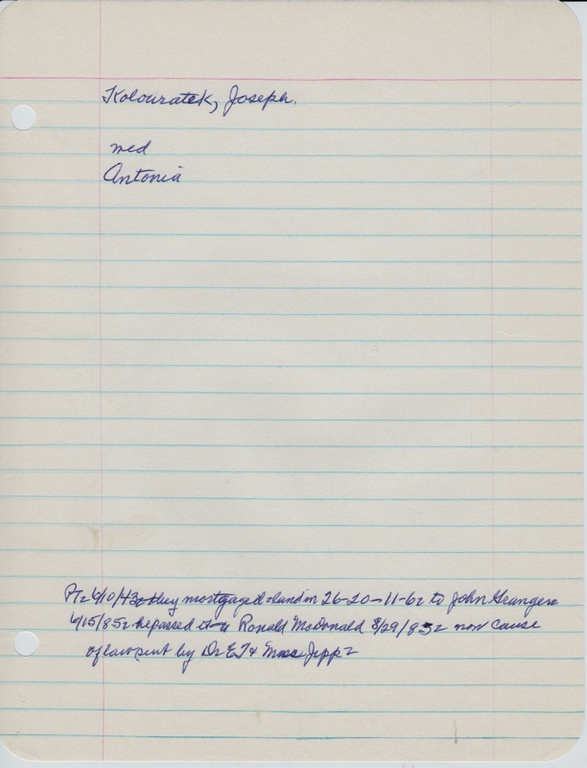 Kolouratek, Joseph.
med
Antonia
they mortgaged land in 26-20-11-62 to John Granger
4/15/85 he passed it to Ronald McDonald 8/29/85 now cause
of lawsuit by Dr E.T &